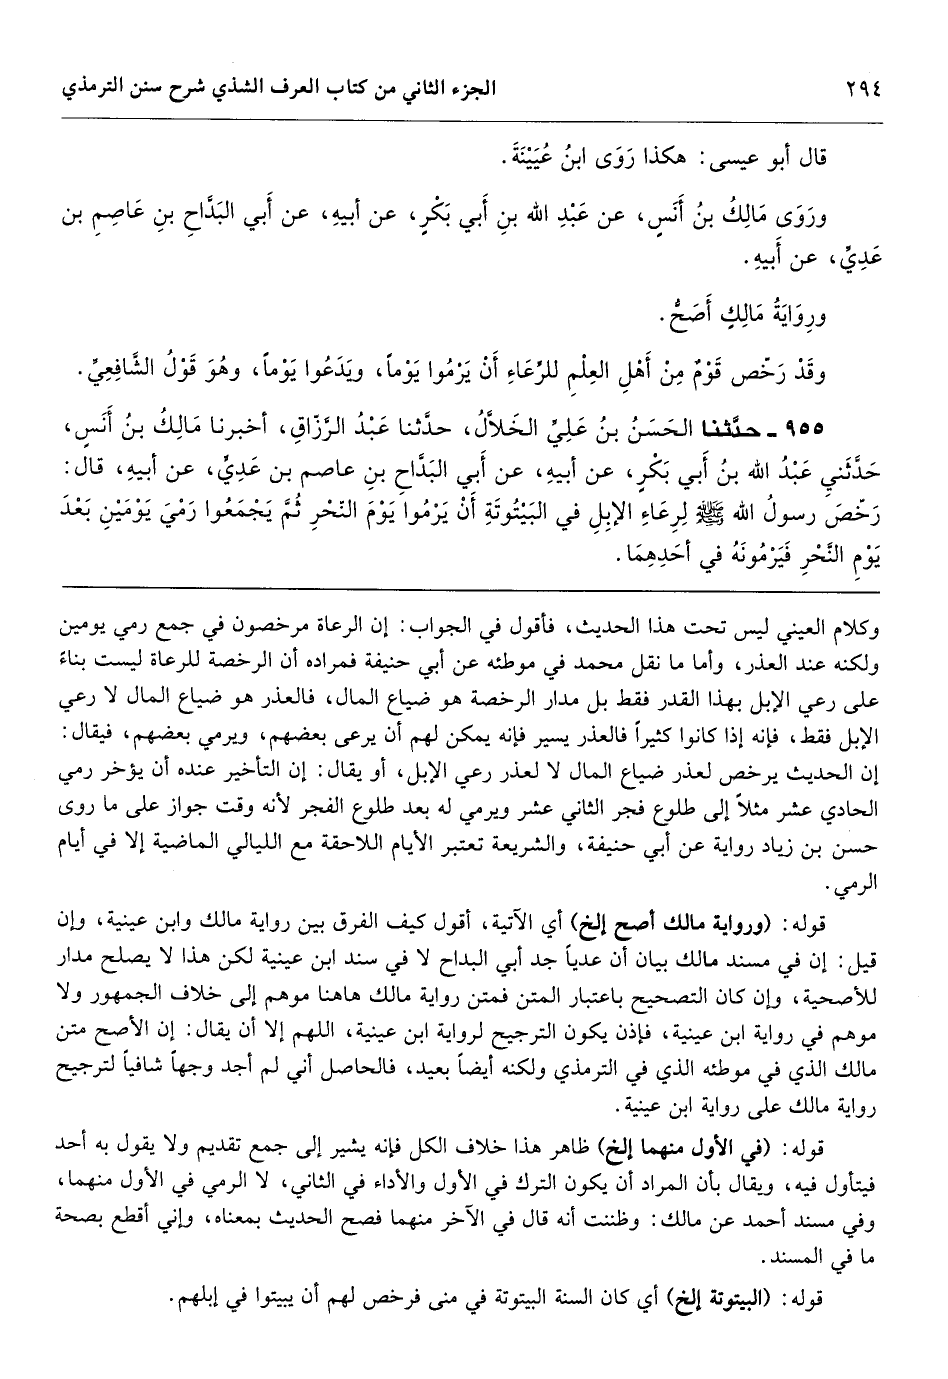 ٢٩٤ الجزء الثاني من كتاب العرف الشذي شرح سنن الترمذي
قال أبو عيسى: هكذا رَوَى ابنُ عُيَيْنَةَ.
ورَوَى مَالِكُ بنُ أَنَسٍ، عن عَبْدِ الله بنِ أبي بَكْرٍ، عن أبيهِ، عن أَبي البَدَّاحِ بنِ عَاصِمِ بن
عَدِيٍّ، عن أَبيهِ.
ورِوَايَةُ مَالِكٍ أَصَحُّ.
وقَدْ رَخّص قَوْمٌ مِنْ أَهْلِ العِلْمِ للرِّعَاءِ أَنْ يَرْمُوا يَوْماً، ويَدَعُوا يَوْماً، وهُوَ قَوْلُ الشَّافِعِيِّ.
٩٥٥ ـ حدَّثنا الحَسَنُ بنُ عَلِيٍّ الخَلاَّلُ، حدّثنا عَبْدُ الرَّزّاقِ، أخبرنا مَالِكُ بنُ أَنَسٍ،
حَدَّثَنِي عَبْدُ الله بنُ أَبي بَكْرٍ، عن أبيهِ، عن أَبي البَدَّاحِ بنِ عاصم بن عَدِيٍّ، عن أبيهِ، قال:
رَخّصَ رسولُ الله ﷺ لِرِعَاءِ الإبِلِ في البَيْتُوتَةِ أَنْ يَرْمُوا يَوْمَ النّحْرِ ثُمَّ يَجْمَعُوا رَمْيَ يَوْمَيْنِ بَعْدَ
يَوْمِ النَّحْرِ فَيَرْمُونَهُ في أحَدِهِمَا.
وكلام العيني ليس تحت هذا الحديث، فأقول في الجواب: إن الرعاة مرخصون في جمع رمي يومين
ولكنه عند العذر، وأما ما نقل محمد في موطئه عن أبي حنيفة فمراده أن الرخصة للرعاة ليست بناءً
على رعي الإبل بهذا القدر فقط بل مدار الرخصة هو ضياع المال، فالعذر هو ضياع المال لا رعي
الإبل فقط، فإنه إذا كانوا كثيراً فالعذر يسير فإنه يمكن لهم أن يرعى بعضهم، ويرمي بعضهم، فيقال:
إن الحديث يرخص لعذر ضياع المال لا لعذر رعي الإبل، أو يقال: إن التأخير عنده أن يؤخر رمي
الحادي عشر مثلاً إلى طلوع فجر الثاني عشر ويرمي له بعد طلوع الفجر لأنه وقت جواز على ما روى
حسن بن زياد رواية عن أبي حنيفة، والشريعة تعتبر الأيام اللاحقة مع الليالي الماضية إلا في أيام
الرمي.
قوله: (ورواية مالك أصح إلخ) أي الآتية، أقول كيف الفرق بين رواية مالك وابن عينية، وإن
قيل: إن في مسند مالك بيان أن عدياً جد أبي البداح لا في سند ابن عينية لكن هذا لا يصلح مدار
للأصحية، وإن كان التصحيح باعتبار المتن فمتن رواية مالك هاهنا موهم إلى خلاف الجمهور ولا
موهم في رواية ابن عينية، فإذن يكون الترجيح لرواية ابن عينية، اللهم إلا أن يقال: إن الأصح متن
مالك الذي في موطئه الذي في الترمذي ولكنه أيضاً بعيد، فالحاصل أني لم أجد وجهاً شافياً لترجيح
رواية مالك على رواية ابن عينية.
قوله: (في الأول منهما إلخ) ظاهر هذا خلاف الكل فإنه يشير إلى جمع تقديم ولا يقول به أحد
فيتأول فيه، ويقال بأن المراد أن يكون الترك في الأول والأداء في الثاني، لا الرمي في الأول منهما،
وفي مسند أحمد عن مالك: وظننت أنه قال في الآخر منهما فصح الحديث بمعناه، وإني أقطع بصحة
ما في المسند.
قوله: (البيتوتة إلخ) أي كان السنة البيتوتة في منى فرخص لهم أن يبيتوا في إبلهم.